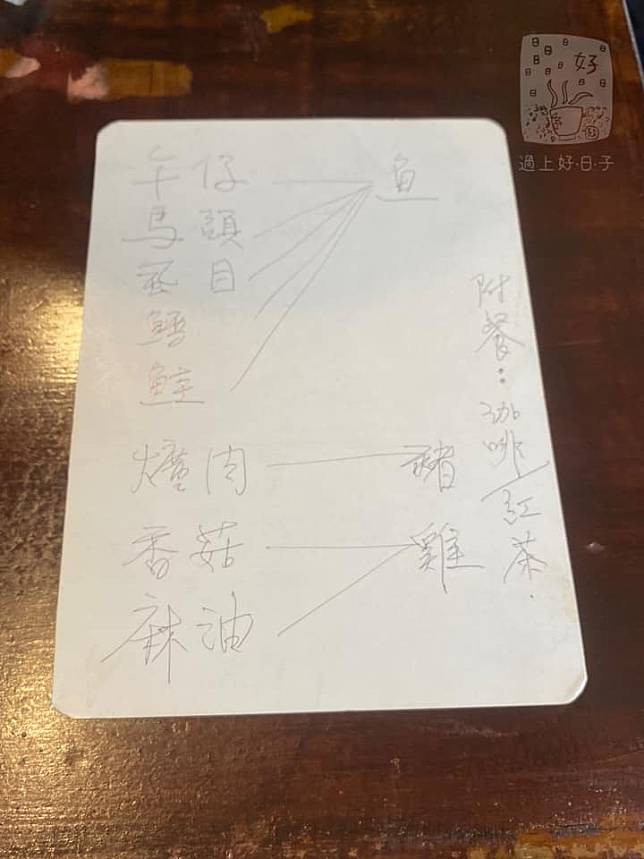 午仔 鱼
馬頭
虱目
鱈
鮭
爌肉 豬
香菇 雞
麻油
附餐:咖啡/紅茶.
好
過上好·日·子